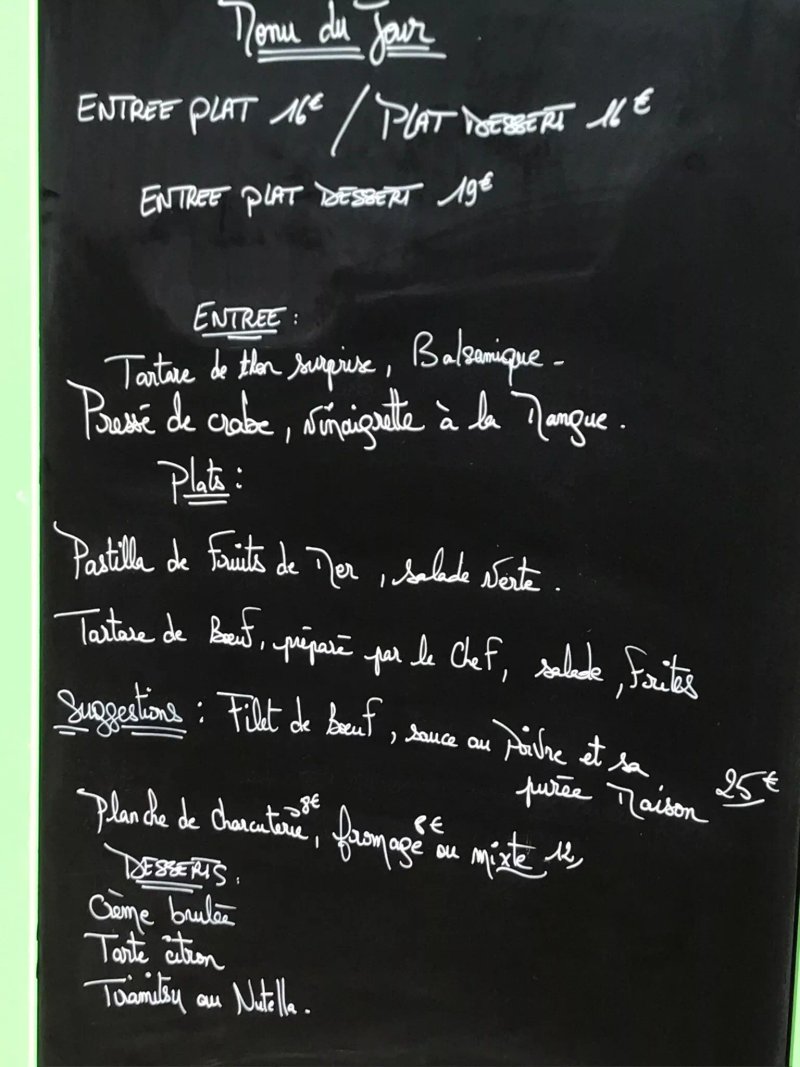 Menu du Jour
ENTREE PLAT 16€ / PLAT DESSERT 16€
ENTREE PLAT DESSERT 19€
ENTREE :
Tartare de thon surprise, Balsamique -
Pressé de crabe, vinaigrette à la Mangue.
Plats :
Pastilla de Fruits de Mer, salade verte.
Tartare de Bœuf, préparé par le Chef, salade, Frites
Suggestions : Filet de Bœuf, sauce au Poivre et sa
purée Maison 25€
Planche de charcuterie 8€, fromage 8€ ou mixte 12,
DESSERTS :
Crème brulée
Tarte citron
Tiramitsu au Nutella.